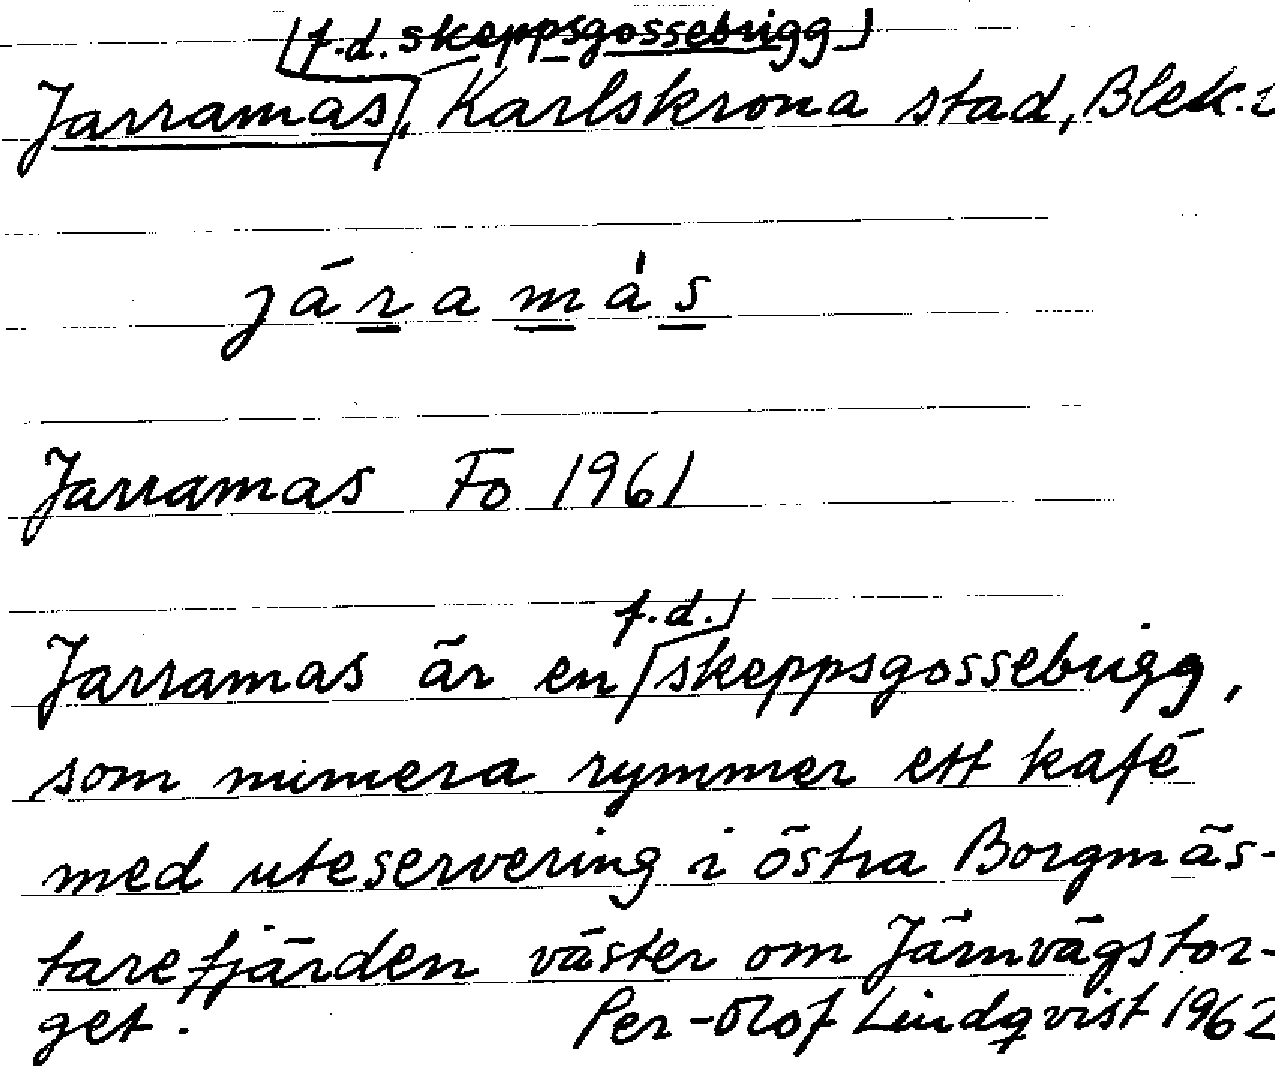 (f.d. skeppsgossebrigg)
Jarramas, Karlskrona stad, Blek. l
járamás
Jarramas Fo 1961
f.d.
Jarramas är en skeppsgossebrigg,
som numera rymmer ett kafé
med uteservering i östra Borgmäs-
tarefjärden väster om Järnvägstor-
get. Per-Olof Lindqvist 1962